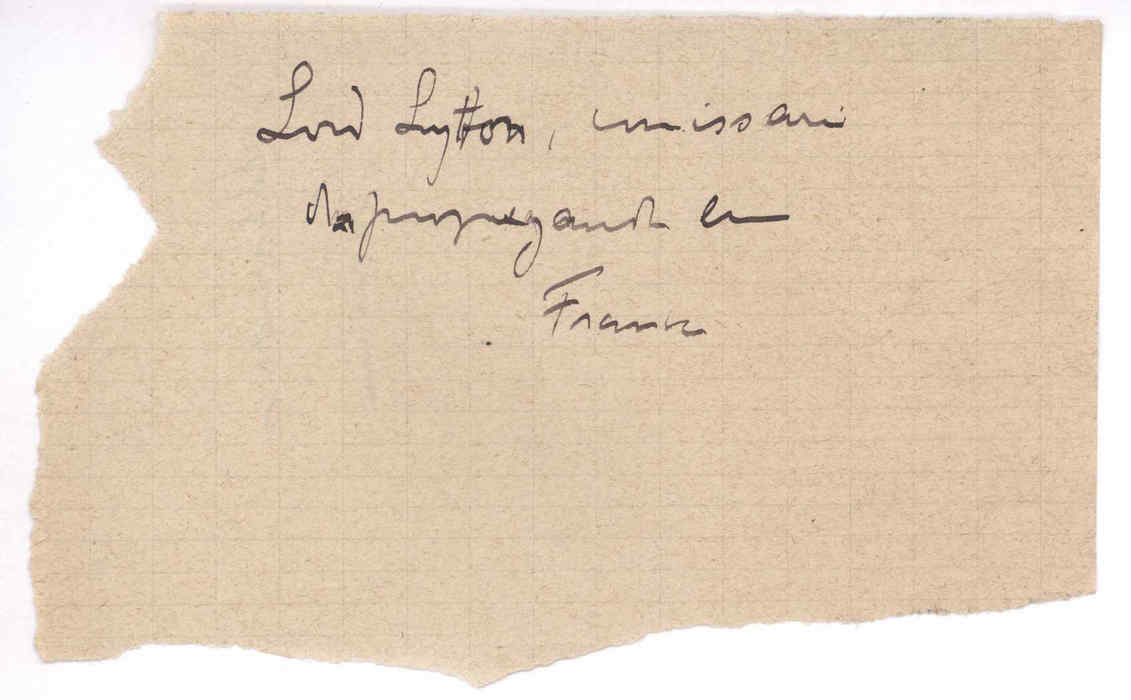 Lord Lytton, commissaire
de propagande en
France